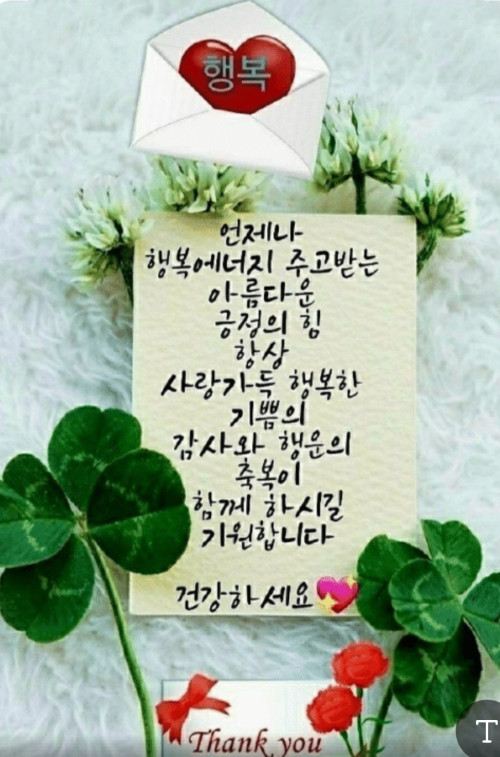 행복
언제나
행복에너지 주고받는
아름다운
긍정의 힘
항상
사랑가득 행복한
기쁨의
감사와 행운의
축복이
함께 하시길
기원합니다
건강하세요💖
Thank you
T